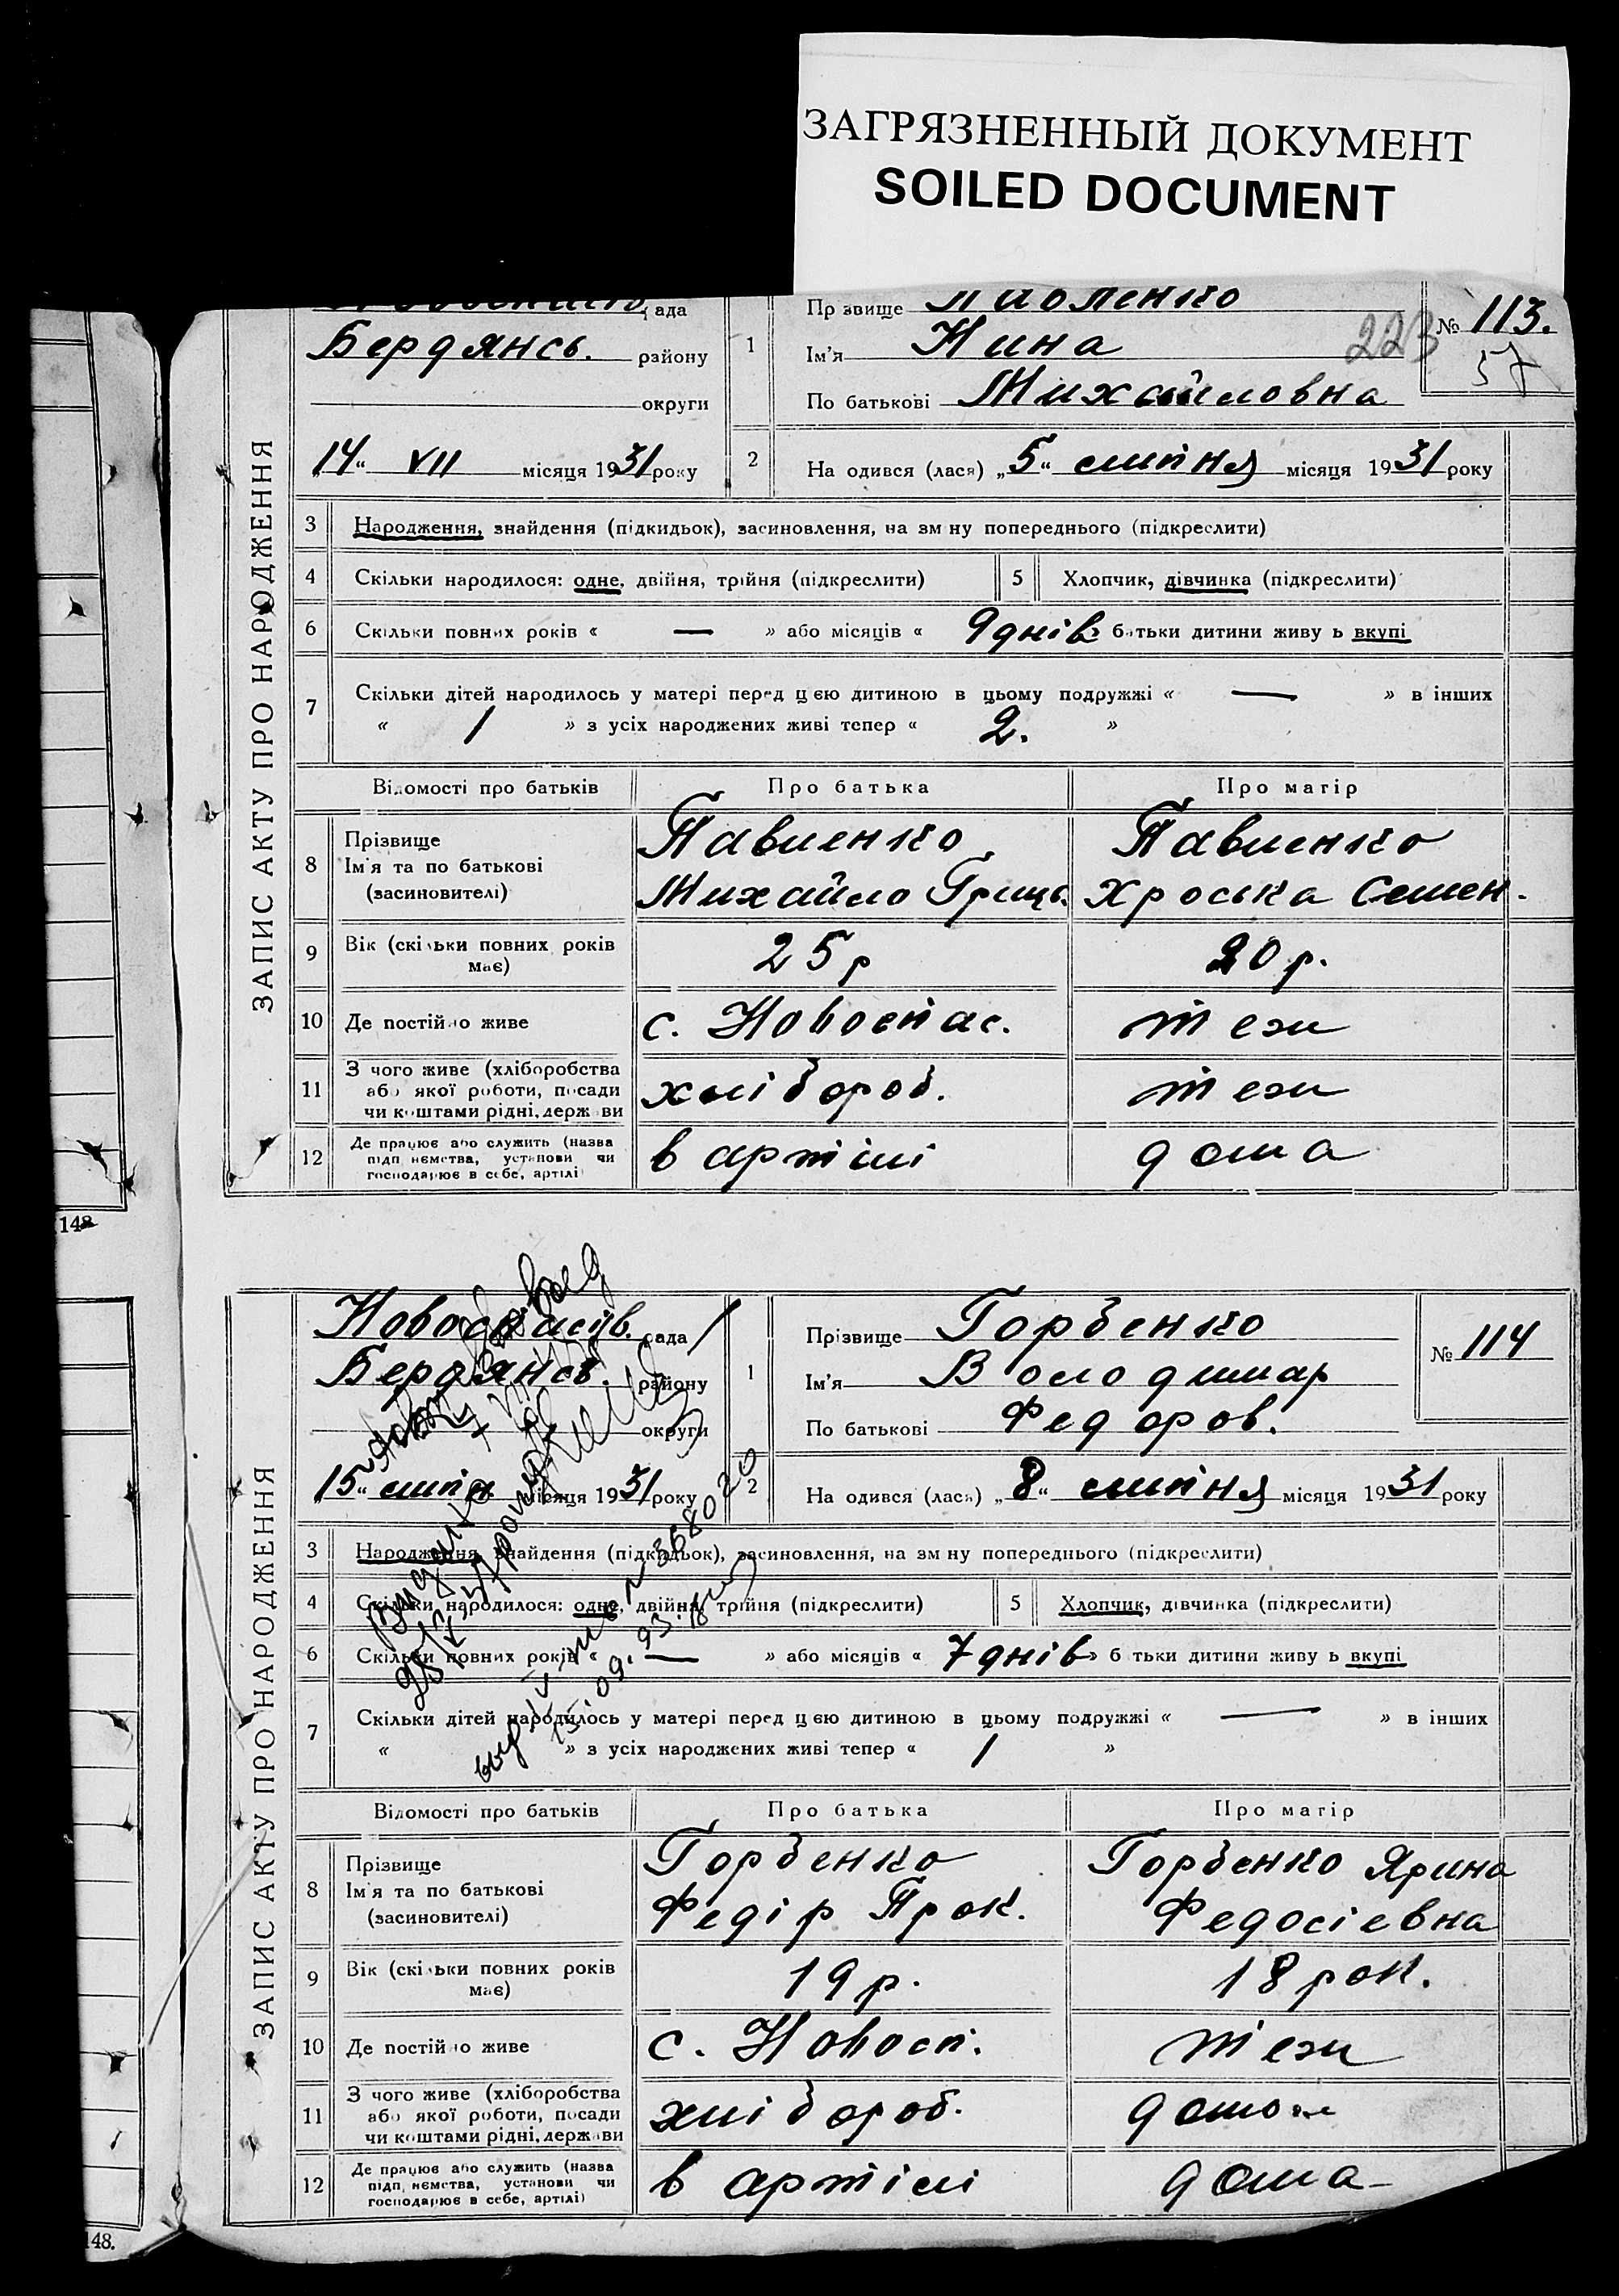 ЗАГРЯЗНЕННЫЙ ДОКУМЕНТ
SOILED DOCUMENT
ЗАПИС АКТУ ПРО НАРОДЖЕННЯ
ада
Бердянсь. району
округи
„14“ VII місяця 1931 року
1
Пр звище
Ім'я Нина
По батькові Михайловна
223
№ 113.
57
2 На одився (лася) „5“ липня місяця 1931 року
3 Народження, знайдення (підкидьок), засиновлення, на зм ну попереднього (підкреслити)
4 Скільки народилося: одне, двійня, трійня (підкреслити) 5 Хлопчик, дівчинка (підкреслити)
6 Скільки повних років « — » або місяців « 9 днів » батьки дитини живу ь вкупі
7 Скільки дітей народилось у матері перед ц ею дитиною в цьому подружжі « — » в інших
« 1 » з усіх народжених живі тепер « 2. »
Відомості про батьків Про батька Про матір
8 Прізвище Ім'я та по батькові (засиновителі)
Павленко Михайло Гриць.
Павленко Хроська Семен.
9 Вік (скільки повних років має) 25 р 20 р.
10 Де постійно живе с. Новоспас. теж
11 З чого живе (хліборобства або якої роботи, посади чи коштами рідні, держ ви хлібороб. теж
12 Де працює або служить (назва підп иємства, установи чи господарює в себе, артілі) в артілі дома
148
ЗАПИС АКТУ ПРО НАРОДЖЕННЯ
Новоспасів. рада
Бердянсь. району
округи
„15“ липн місяця 1931 року
1
Прізвище Горбенко
Ім'я Володимар
По батькові Федоров.
№ 114
2 На одився (лася) „8“ липня місяця 1931 року
3 Народження, знайдення (підкидьок), засиновлення, на зм ну попереднього (підкреслити)
4 Скільки народилося: одне, двійня, трійня (підкреслити) 5 Хлопчик, дівчинка (підкреслити)
6 Скільки повних років « — » або місяців « 7 днів » б тьки дитини живу ь вкупі
7 Скільки дітей народилось у матері перед ц ею дитиною в цьому подружжі « — » в інших
« » з усіх народжених живі тепер « 1 »
15.09.93.
Відомості про батьків Про батька Про матір
8 Прізвище Ім'я та по батькові (засиновителі)
Горбенко Федір Прок.
Горбенко Ярина Федосіевна
9 Вік (скільки повних років має) 19 р. 18 рок.
10 Де постійно живе с. Новосп. теж
11 З чого живе (хліборобства або якої роботи, посади чи коштами рідні, держ ви хлібороб.
12 Де працює або служить (назва підп иємства, установи чи господарює в себе, артілі) в артілі дома
148.